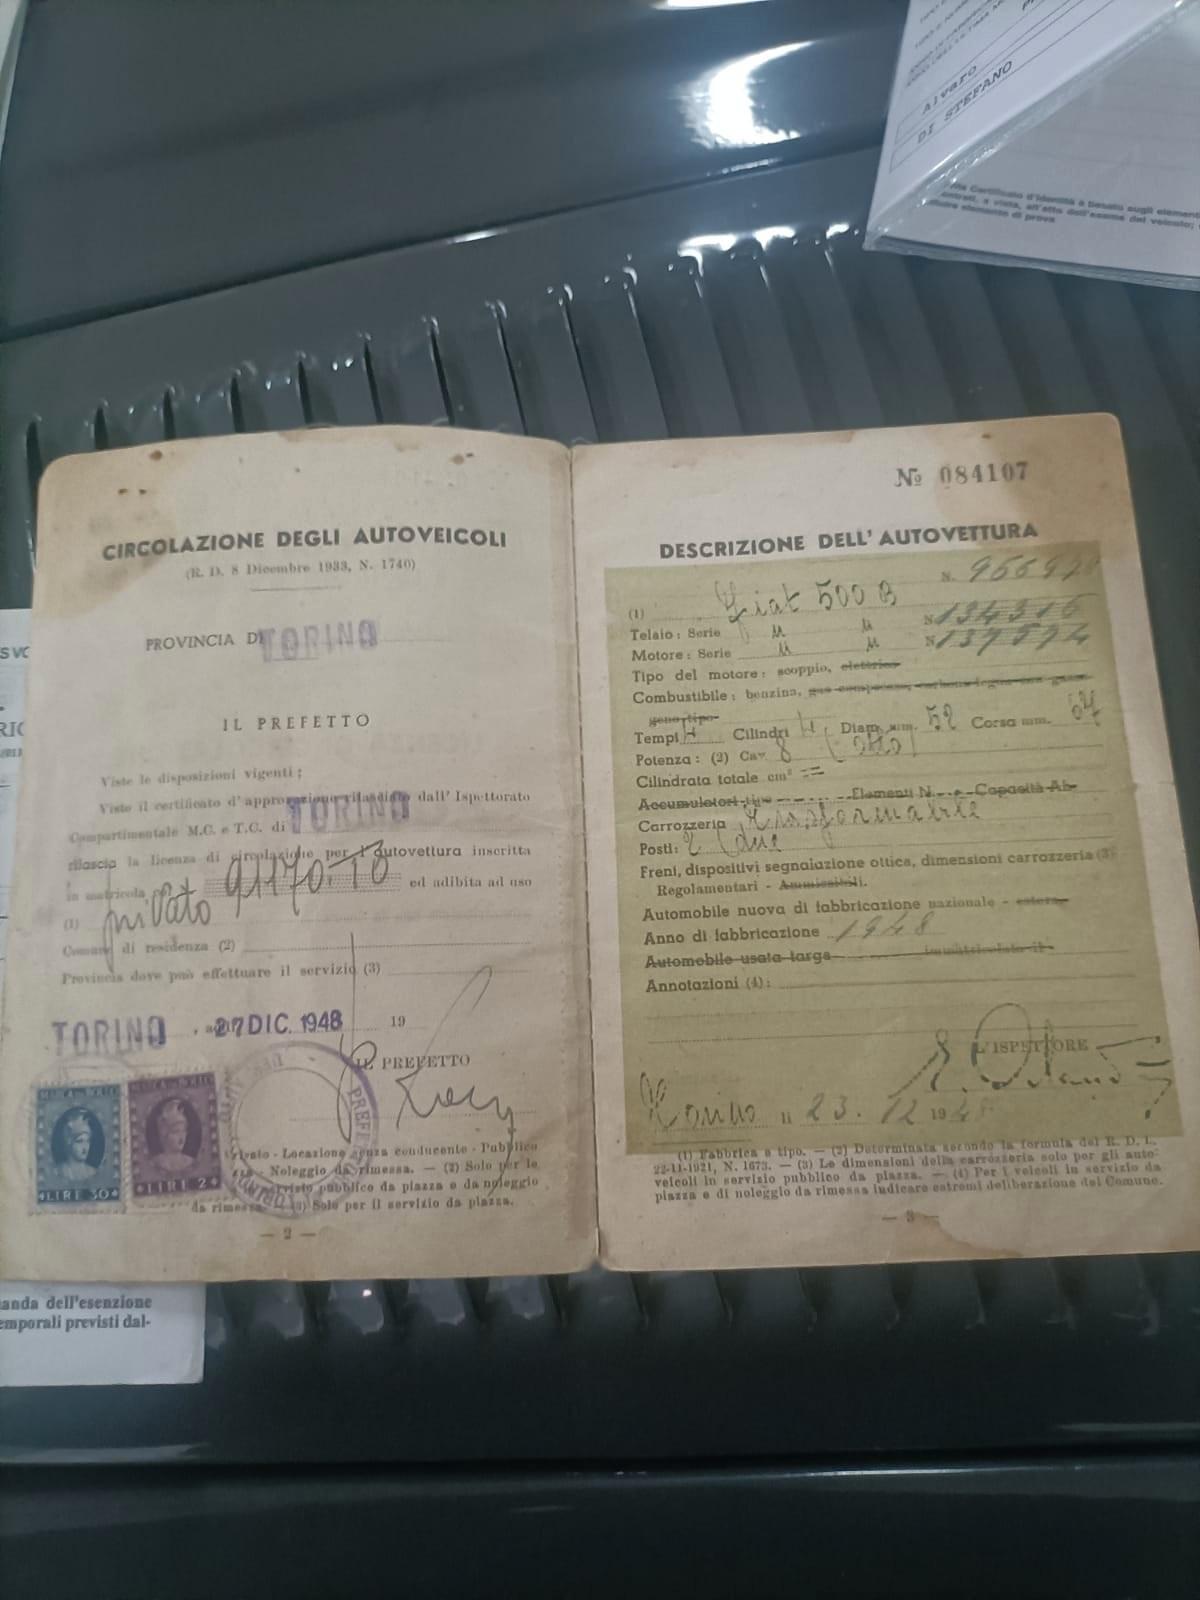 Alvaro
DI STEFANO
CIRCOLAZIONE DEGLI AUTOVEICOLI
(R. D. 8 Dicembre 1933, N. 1740)
PROVINCIA DI TORINO
IL PREFETTO
Viste le disposizioni vigenti;
Visto il certificato d'approvazione rilasciato dall'Ispettorato
Compartimentale M.C. e T.C. di TORINO
rilascia la licenza di circolazione per l'autovettura inscritta
in matricola 91170.TO ed adibita ad uso
(1) privato
Comune di residenza (2)
Provincia dove può effettuare il servizio (3)
TORINO, 27 DIC. 1948 19
IL PREFETTO
MARCA DA BOLLO
LIRE 30
MARCA DA BOLLO
LIRE 2
Privato - Locazione senza conducente - Pubblico
Noleggio da rimessa. — (2) Solo per le
servizio pubblico da piazza e da noleggio
da rimessa. (3) Solo per il servizio da piazza.
— 2 —
№ 084107
DESCRIZIONE DELL'AUTOVETTURA
(1) Fiat 500 B N.
Telaio: Serie N. 134316
Motore: Serie N. 137574
Tipo del motore: scoppio, elettrico
Combustibile: benzina,
Tempi 4 Cilindri 4 Diam. mm. 52 Corsa mm. 67
Potenza: (2) Cav. 8 (otto)
Cilindrata totale cm³ ==
Accumulatori tipo Elementi N. Capacità Ah
Carrozzeria Trasformabile
Posti: 2 (due)
Freni, dispositivi segnalazione ottica, dimensioni carrozzeria (3)
Regolamentari - Ammissibili.
Automobile nuova di fabbricazione nazionale - estera
Anno di fabbricazione 1948
Automobile usata targa immatricolata il
Annotazioni (4):
L'ISPETTORE
Torino li 23.12 1948
(1) Fabbrica e tipo. — (2) Determinata secondo la formula del R. D. L.
22-11-1921, N. 1673. — (3) Le dimensioni della carrozzeria solo per gli auto-
veicoli in servizio pubblico da piazza. — (4) Per i veicoli in servizio da
piazza e di noleggio da rimessa indicare estremi deliberazione del Comune.
— 3 —
anda dell'esenzione
emporali previsti dal-